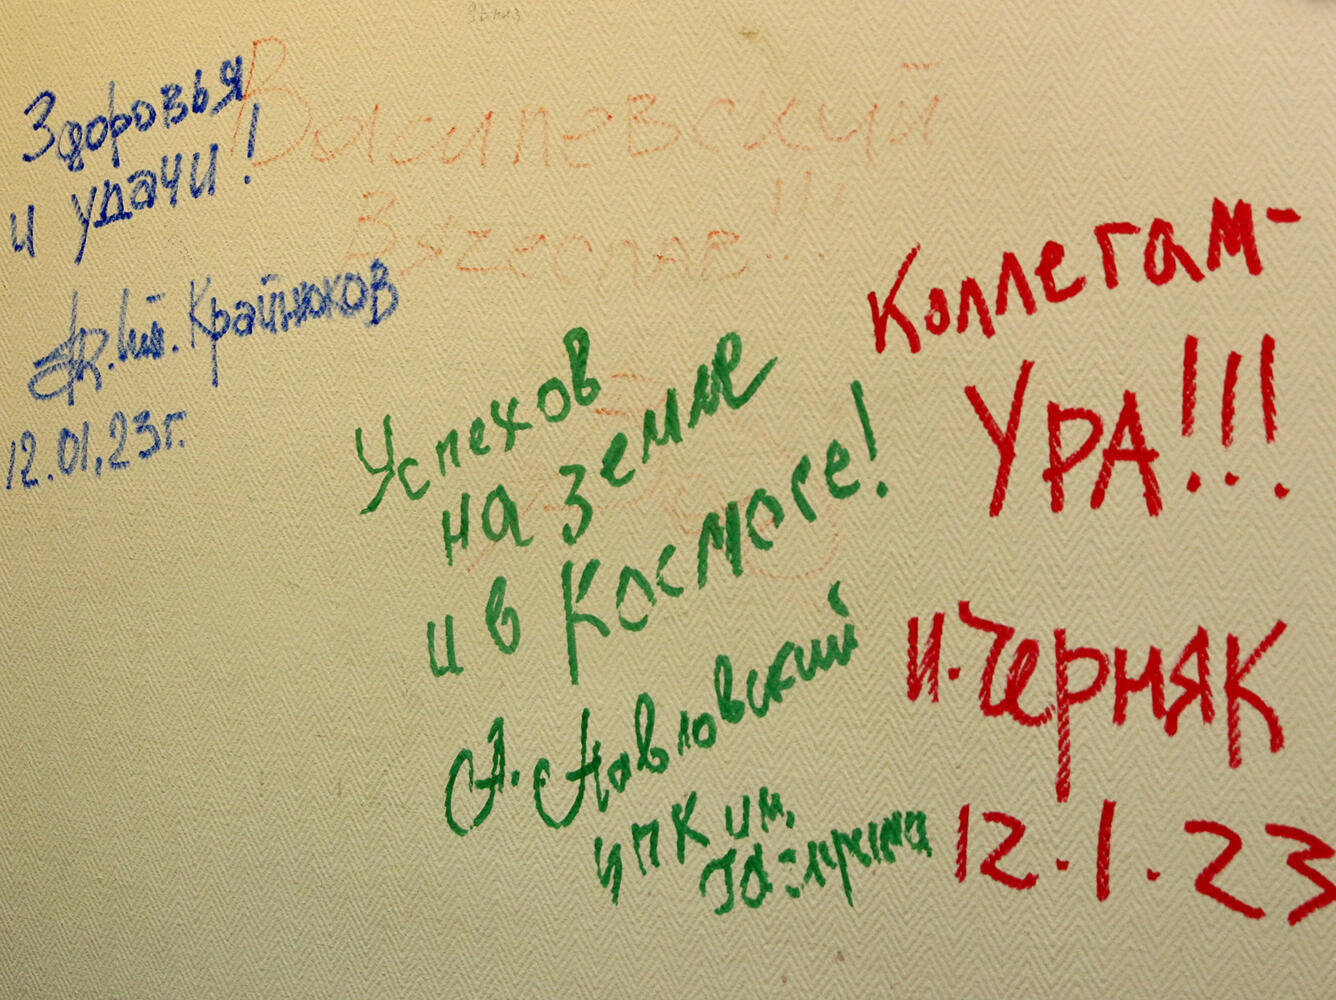 Здоровья
и удачи!
Крайнюков
12.01.23г.
Василевский
Вячеслав!!
Успехов
на земле
и в Космосе!
А. Павловский
ЦПК им.
Гагарина
Коллегам-
УРА!!!
И. Черняк
12.1.23